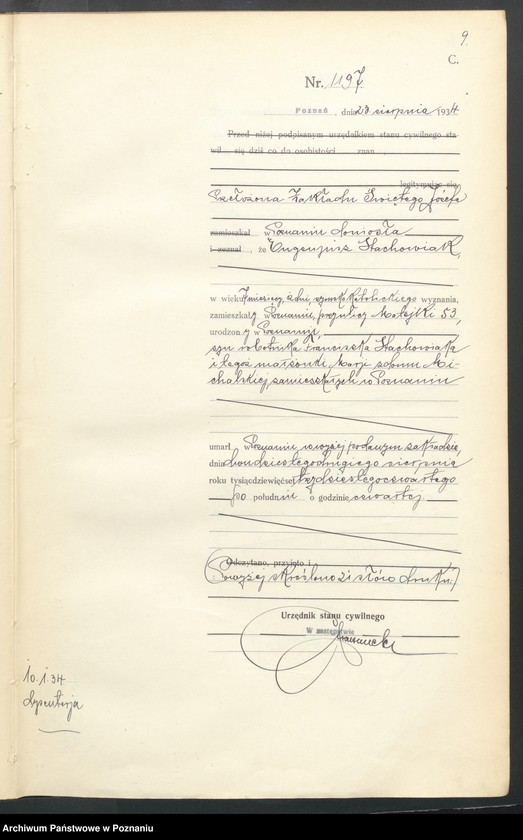 9.
C.
Nr. 1197
Poznań, dnia 23 sierpnia 1934
Przed niżej podpisanym urzędnikiem stanu cywilnego sta
wił się dziś co do osobistości znan
legitymując się
Przełożona Zakładu Świętego Józefa
zamieszkał w Poznaniu doniosła
i zeznał, że Eugenjusz Stachowiak,
w wieku 7 miesięcy, dni, rzymskokatolickiego wyznania,
zamieszkały w Poznaniu, przy ulicy Matejki 53,
urodzony w Poznaniu,
syn robotnika Franciszka Stachowiaka
i tegoż małżonki Marji z domu Mi-
chalskiej, zamieszkałych w Poznaniu
umarł w Poznaniu w wyżej podanym zakładzie,
dnia dwudziestego drugiego sierpnia
roku tysiąc dziewięćset trzydziestego czwartego
po południu o godzinie czwartej.
Odczytano, przyjęto i
Powyżej skreślono 21 słów druku.
Urzędnik stanu cywilnego
W zastępstwie
10.1.34
dysenterja
Archiwum Państwowe w Poznaniu